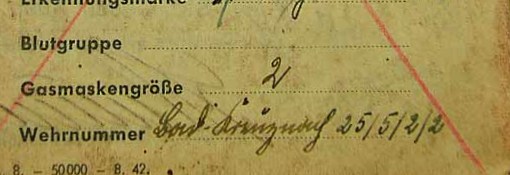 Erkennungsmarke
Blutgruppe
Gasmaskengröße 2
Wehrnummer Bad-Kreuznach 25/5/2/2
8. – 50000 – 8. 42.